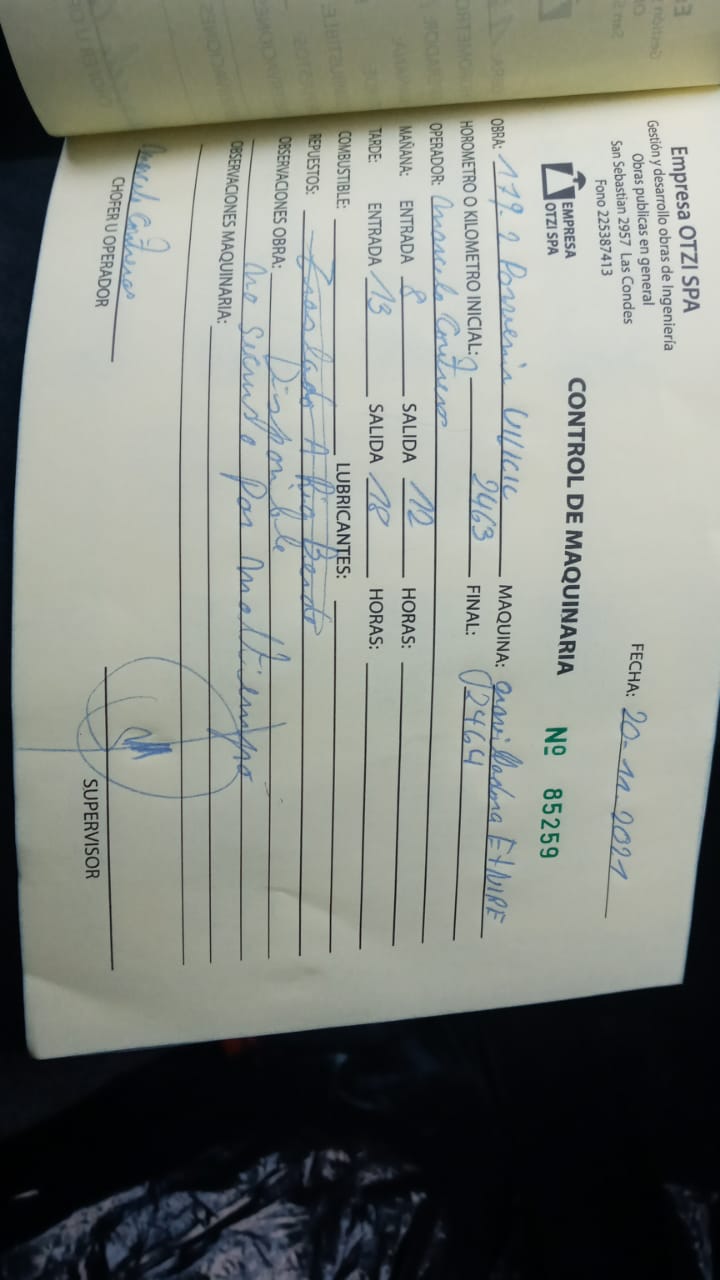 Empresa OTZI SPA
Gestión y desarrollo obras de Ingeniería
Obras publicas en general
San Sebastian 2957 Las Condes
Fono 225387413
EMPRESA
OTZI SPA
FECHA: 20-11-2021
CONTROL DE MAQUINARIA
Nº 85259
OBRA: 179-2 Porvenir MAQUINA: gravilladora
HOROMETRO O KILOMETRO INICIAL: 2463 FINAL: 2464
OPERADOR: Marcelo Contreras
MAÑANA: ENTRADA 8 SALIDA 12 HORAS:
TARDE: ENTRADA 13 SALIDA 18 HORAS:
COMBUSTIBLE: LUBRICANTES:
REPUESTOS: Traslado A Rio
OBSERVACIONES OBRA: Disponible
no por maltiempo
OBSERVACIONES MAQUINARIA:
Marcelo Contreras
CHOFER U OPERADOR
SUPERVISOR